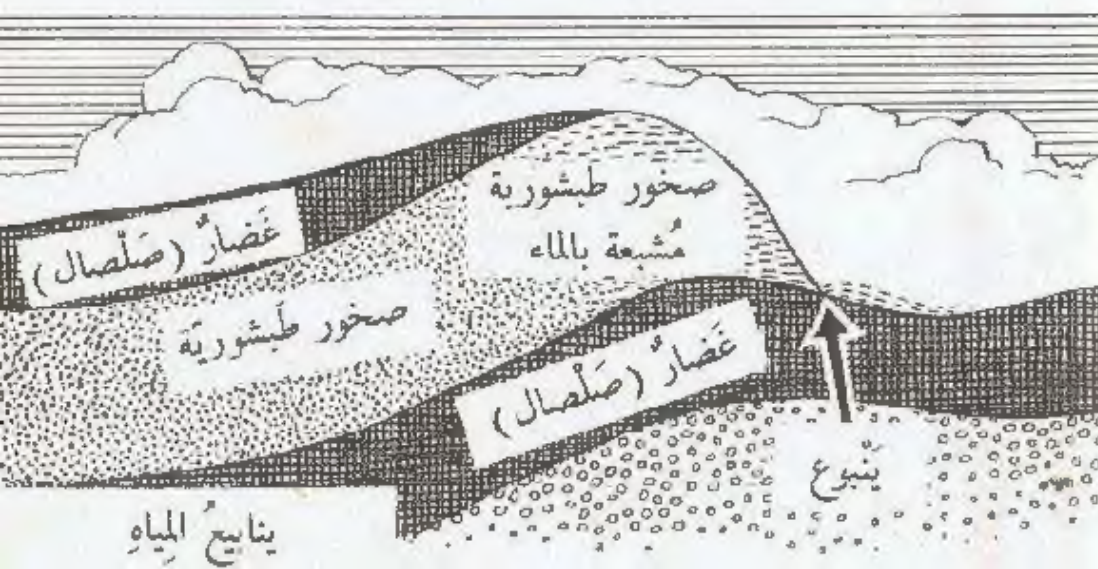 صخور طبشورية
مُشبعة بالماء
غَضارٌ (صَلْصال)
صخور طَبشوريّة
غَضارٌ (صَلْصال)
يَنبوع
ينابيعُ المِياهِ